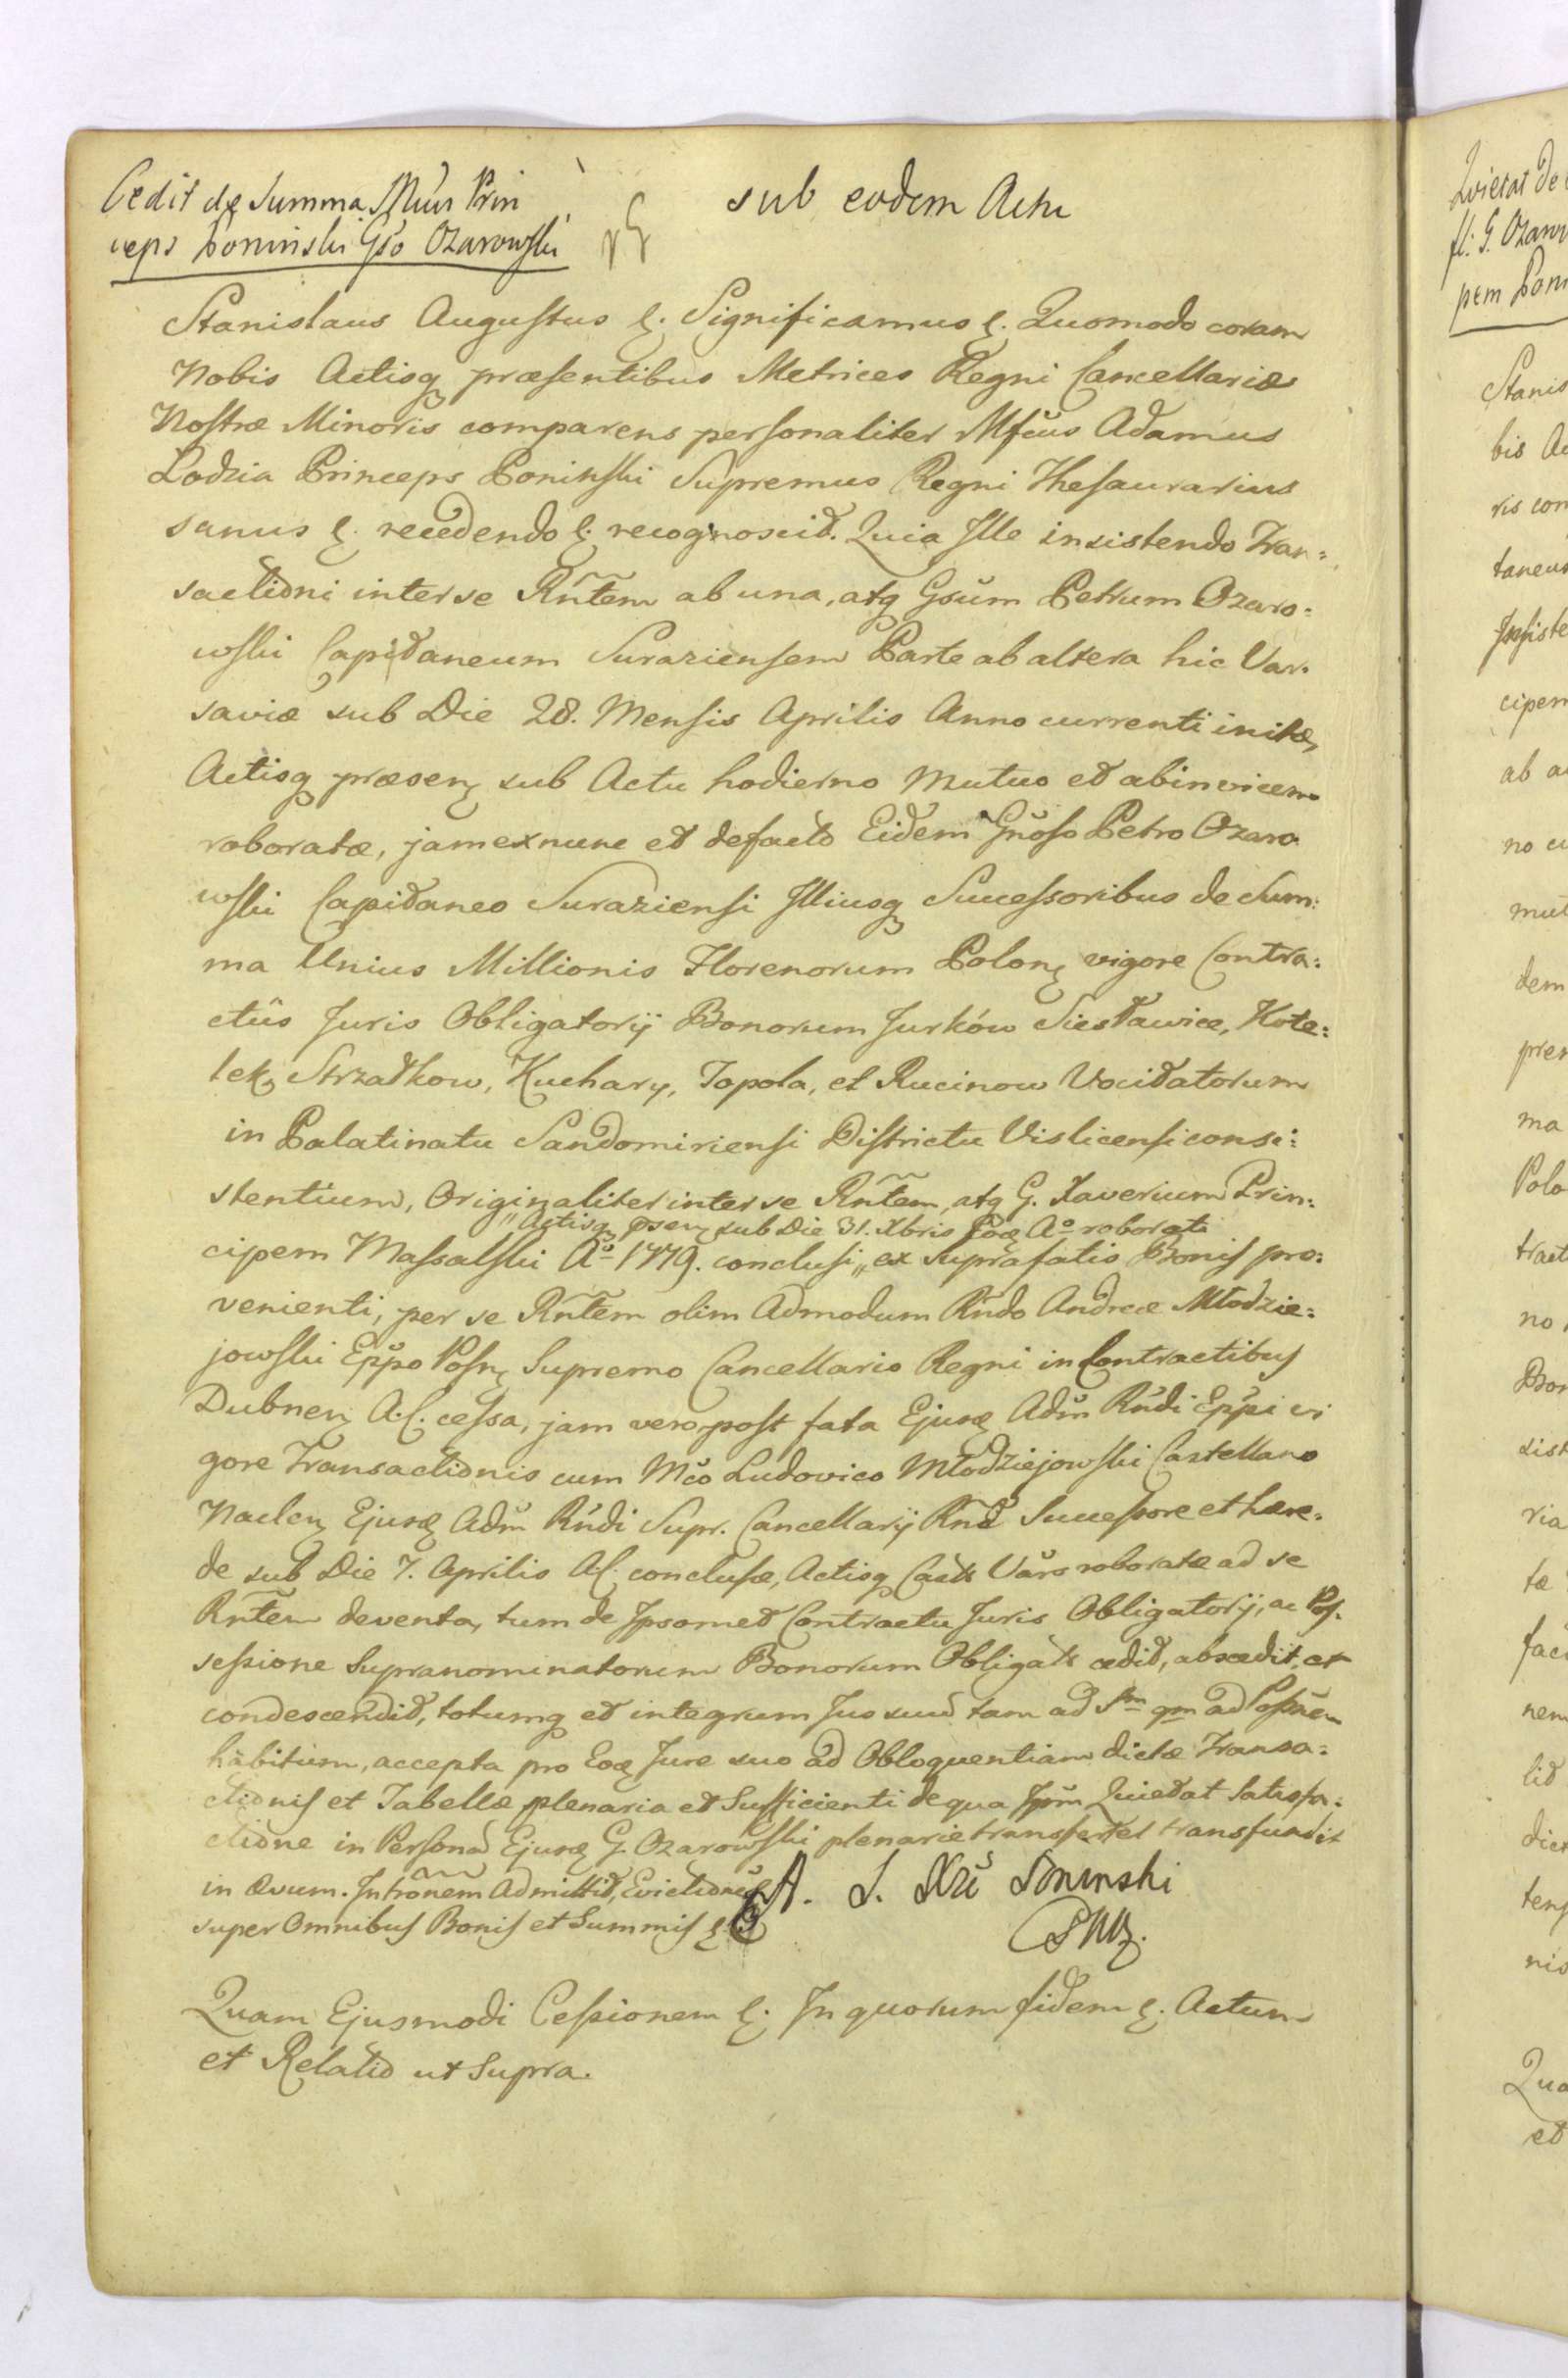 Cedit de Summa Mcus Prin
ceps Poninski Gso Ozarowski
sub eodem Actu
Stanislaus Augustus &. Significamus &. Quomodo coram
Nobis Actisq præsentibus Metrices Regni Cancellariæ
Nostræ Minoris comparens personaliter Mfcus Adamus
Lodzia Princeps Poninski Supremus Regni Thesaurarius
sanus &. recedendo &. recognoscit. Quia Ille insistendo Tran=
sactioni inter se Rñtem ab una, atq Gsum Petrum Ozaro=
wski Capitaneum Suraziensem Parte ab altera hic Var-
saviæ sub Die 28. Mensis Aprilis Anno currenti initæ,
Actisq præsen sub Actu hodierno mutuo et abinvicem
roboratæ, jam exnunc et defacto Eidem Gñoso Petro Ozaro
wski Capitaneo Suraziensi Illiusq Successoribus de Sum=
ma Unius Millionis Florenorum Polon vigore Contra=
ctûs Juris Obligatorij Bonorum Jurków Siesławice, Kote=
lek, Strzałkow, Kuchary, Topola, et Rucinow Vocitatorum
in Palatinatu Sandomiriensi Districtu Vislicensi consi=
stentium, Originaliter inter se Rñtem, atq G. Xaverium Prin=
" Actisq psen sub Die 31. Xbris Eoq Aº roborati
cipem Massalski Aº 1779. conclusi " ex suprafatis Bonis pro=
venienti, per se Rñtem olim Admodum Rndo Andreæ Młodzie=
jowski Eppo Posn Supremo Cancellario Regni in Contractibus
Dubnen A.C. cessa, jam vero post fata Ejusq Adm Rndi Eppi vi
gore Transactionis cum Mco Ludovico Młodziejowski Castellano
Naclen Ejusq Adm Rndi Supr. Cancellarij Rnd Successore et hære=
de sub Die 7. Aprilis A.C. conclusæ, Actisq Cast Vars roboratæ ad se
Rñtem deventa, tum de Ipsomet Contractu Juris Obligatorij, ac Pos=
sessione Supranominatorum Bonorum Obligat cedit, abscedit, et
condescendit, totumq et integrum Jus suum tam ad Sm qm ad Possnem
habitum, accepta pro Eoq Jure suo ad Obloquentiam dictæ Transa=
ctionis et Tabellæ plenaria et Sufficienti de qua Ipm Quietat Satisfa=
ctione in Personam Ejusq G. Ozarowski plenarie transfert et transfundit
in ævum. Intrõnem Admittit, Evictionem
super Omnibus Bonis et Summis &.
A. L. Xże Poninski
PWK.
Quam Ejusmodi Cessionem &. In quorum fidem &. Actum
et Relatio ut Supra.
Quietat de
fl: G. Ozarow
pem Poni
Stanis
bis Ac
ris com
taneum
Insiste
cipem
ab a
no cu
mut
dem
præs
ma
Polo
tract
no
Bon
sist
ria
tæ
fact
nem
lit
dict
tens
nis
Qua
et